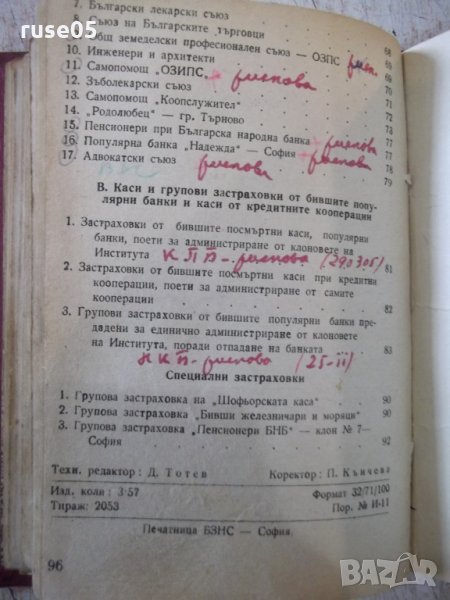 ruse05
7. Български лекарски съюз
8. Съюз на Българските търговци 68
9. Общ земеделски професионален съюз — ОЗПС 69
10. Инженери и архитекти 69
11. Самопомощ „ОЗИПС„ рискова 70
12. Зъболекарски съюз 71
13. Самопомощ „Коопслужител" 77
14. „Родолюбец" — гр. Търново 77
15. Пенсионери при Българска народна банка + рискова 77
16. Популярна банка „Надежда" — София + рискова 78
17. Адвокатски съюз рискова 79
В. Каси и групови застраховки от бившите попу-
лярни банки и каси от кредитните кооперации
1. Застраховки от бившите посмъртни каси, популярни
банки, поети за администриране от клоновете на
Института КПБ - рискова (290305) 81
2. Застраховки от бившите посмъртни каси при кредитни
кооперации, поети за администриране от самите
кооперации 82
3. Групови застраховки от бившите популярни банки пре-
дадени за единично администриране от клоновете
на Института, поради отпадане на банката 83
НКБ - рискова (25-II)
Специални застраховки
1. Групова застраховка на „Шофьорската каса" 90
2. Групова застраховка „Бивши железничари и моряци" 90
3. Групова застраховка „Пенсионери БНБ" — клон № 7—
София 92
Техн. редактор: Д. Тотев Коректор: П. Кънчева
Изд. коли: 3·57 Формат 32/71/100
Тираж: 2053 Пор. № И-11
Печатница БЗНС — София.
96
BAZAR